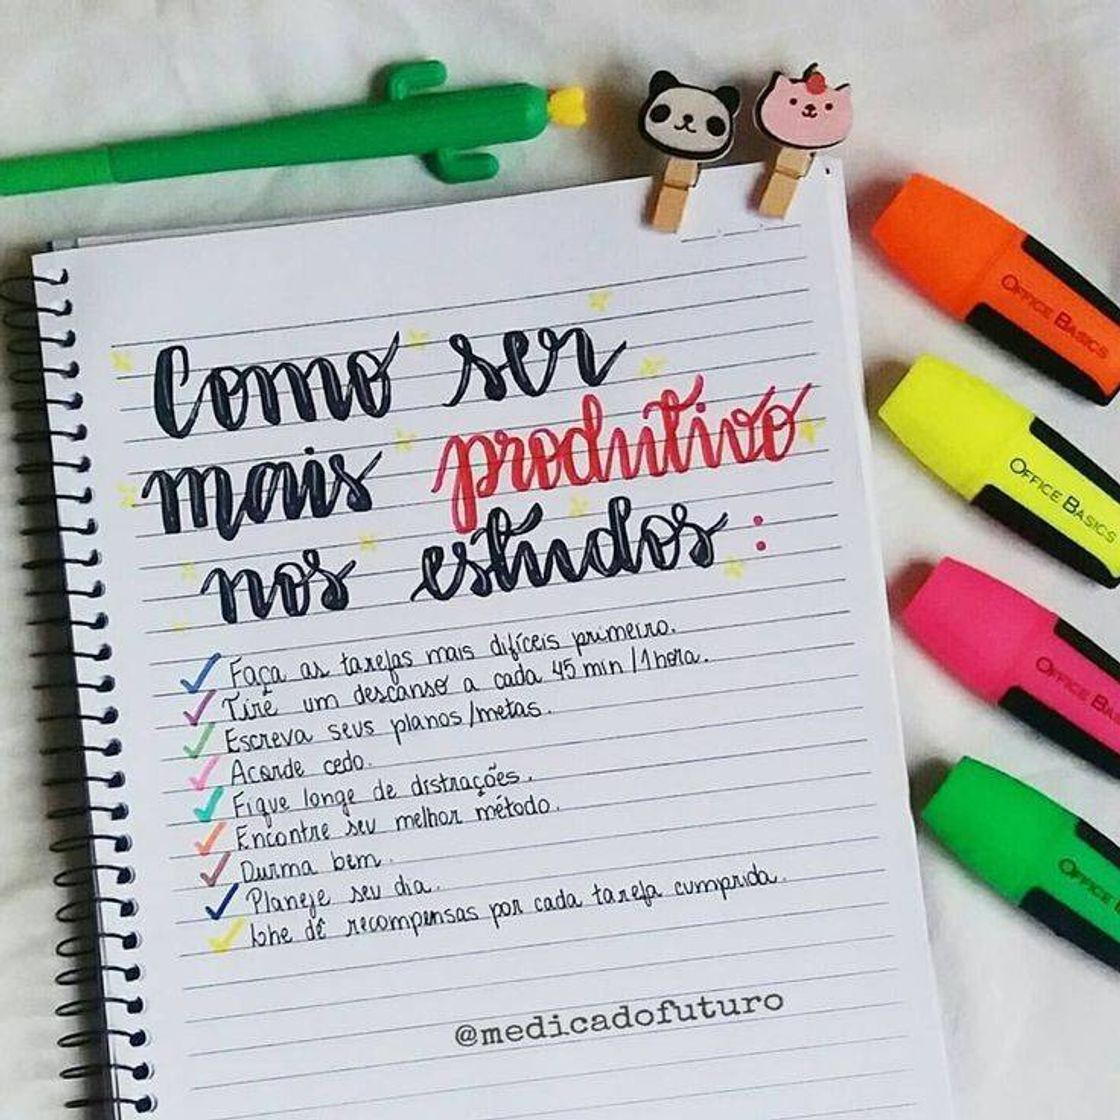 Como ser
mais produtivo
nos estudos:
Faça as tarefas mais difíceis primeiro.
Tire um descanso a cada 45 min /1 hora.
Escreva seus planos/metas.
Acorde cedo.
Fique longe de distrações.
Encontre seu melhor método.
Durma bem.
Planeje seu dia.
Lhe dê recompensas por cada tarefa cumprida.
@medicadofuturo
OFFICE BASICS
OFFICE BASICS
OFFICE BA
OFFICE